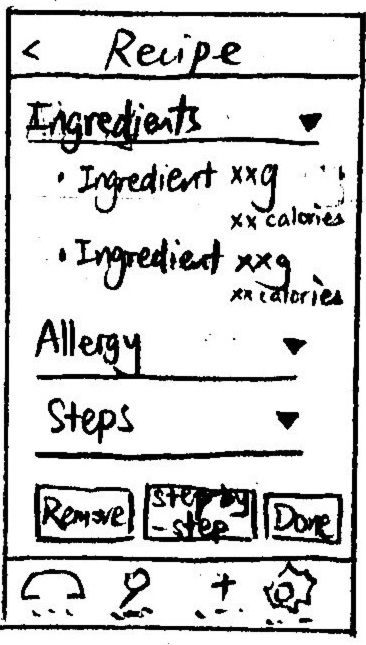 < Recipe
Ingredients
· Ingredient xxg
xx calories
· Ingredient xxg
xx calories
Allergy
Steps
Remove
step by
-step
Done